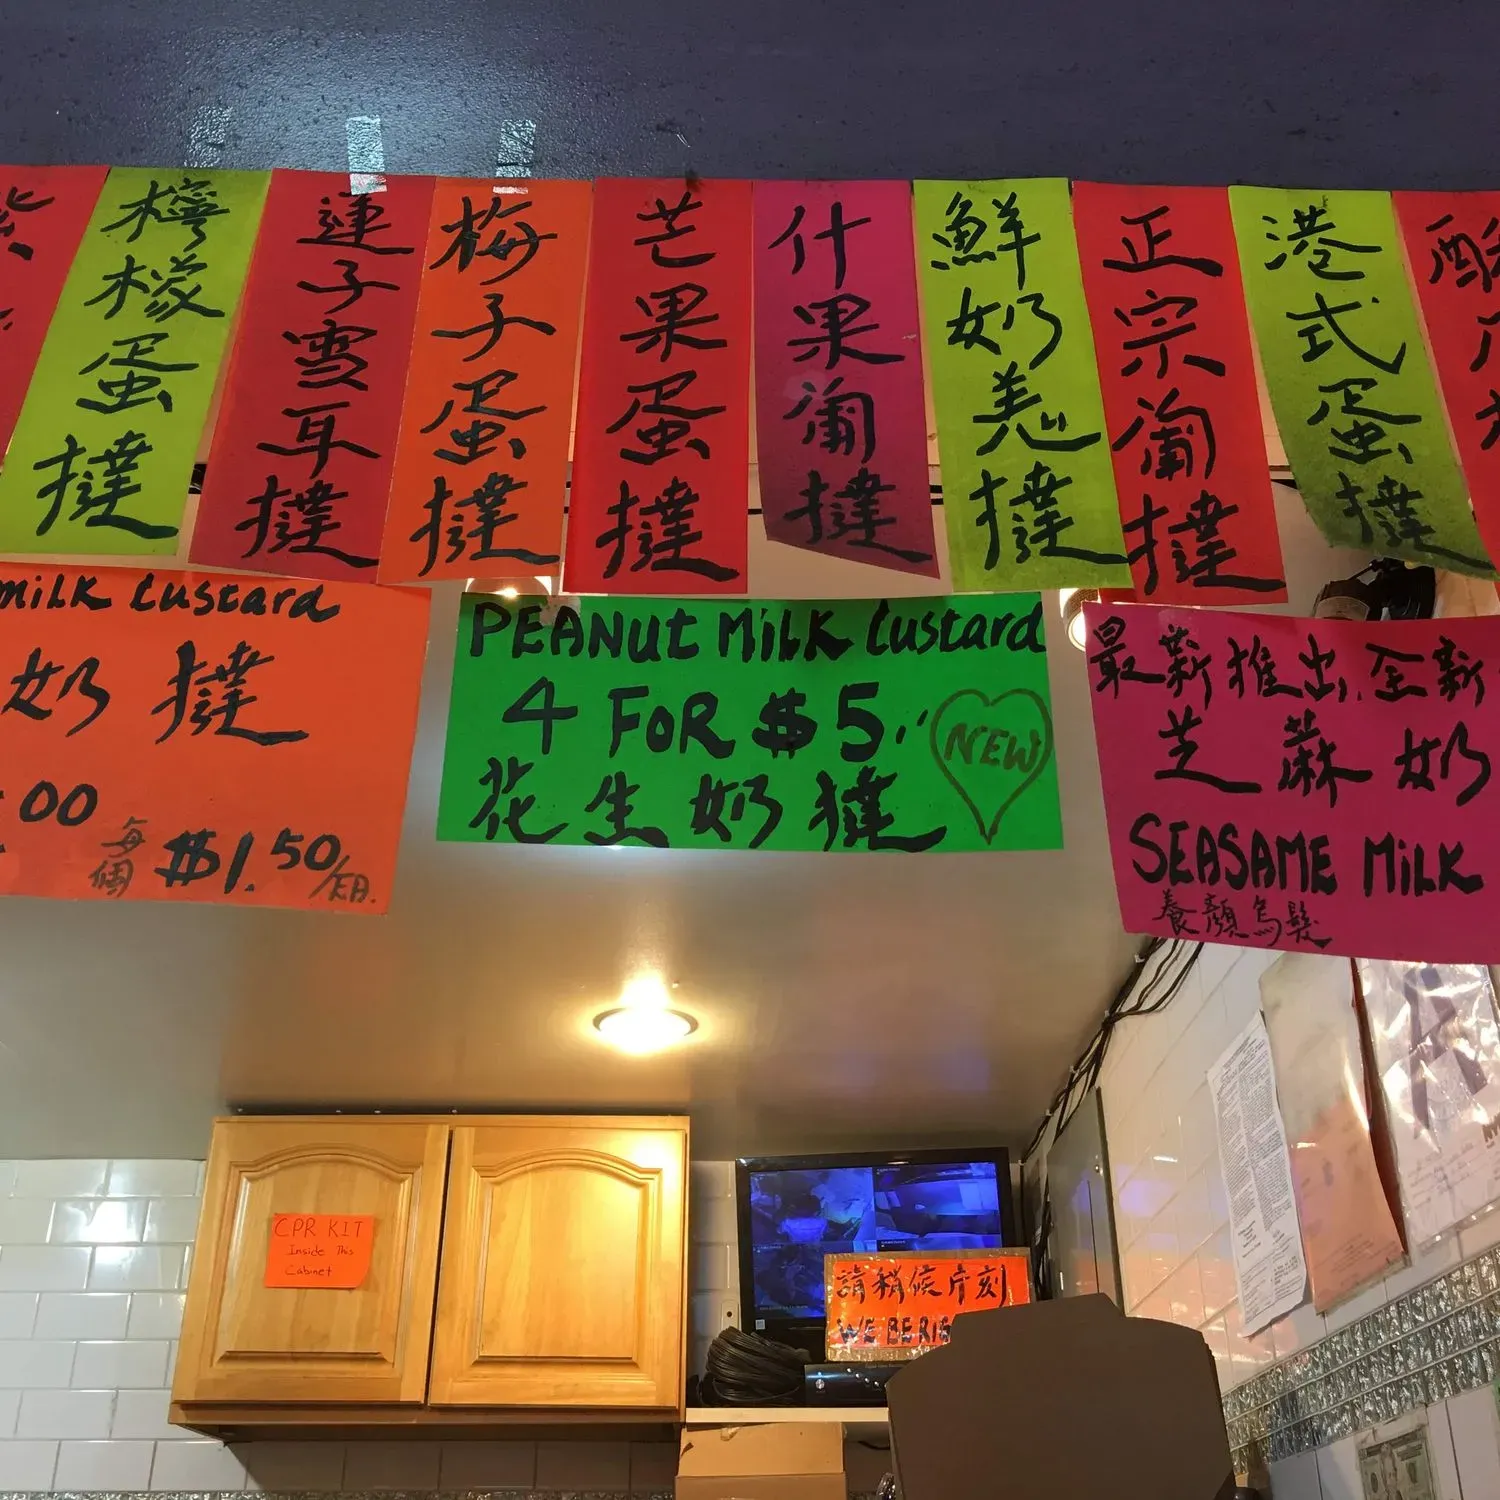 檸檬蛋撻
蓮子雪耳撻
梅子蛋撻
芒果蛋撻
什果葡撻
鮮奶羗撻
正宗葡撻
港式蛋撻
MiLK Custard
奶撻
00
每個 $1.50/EA.
PEANUt MiLK Custard
4 FOR $5
NEW
花生奶撻
最新推出.全新
芝蔴奶
SEASAME MiLK
養顏烏髮
CPR KIT
Inside This
Cabinet
請稍候片刻
WE BE RIG